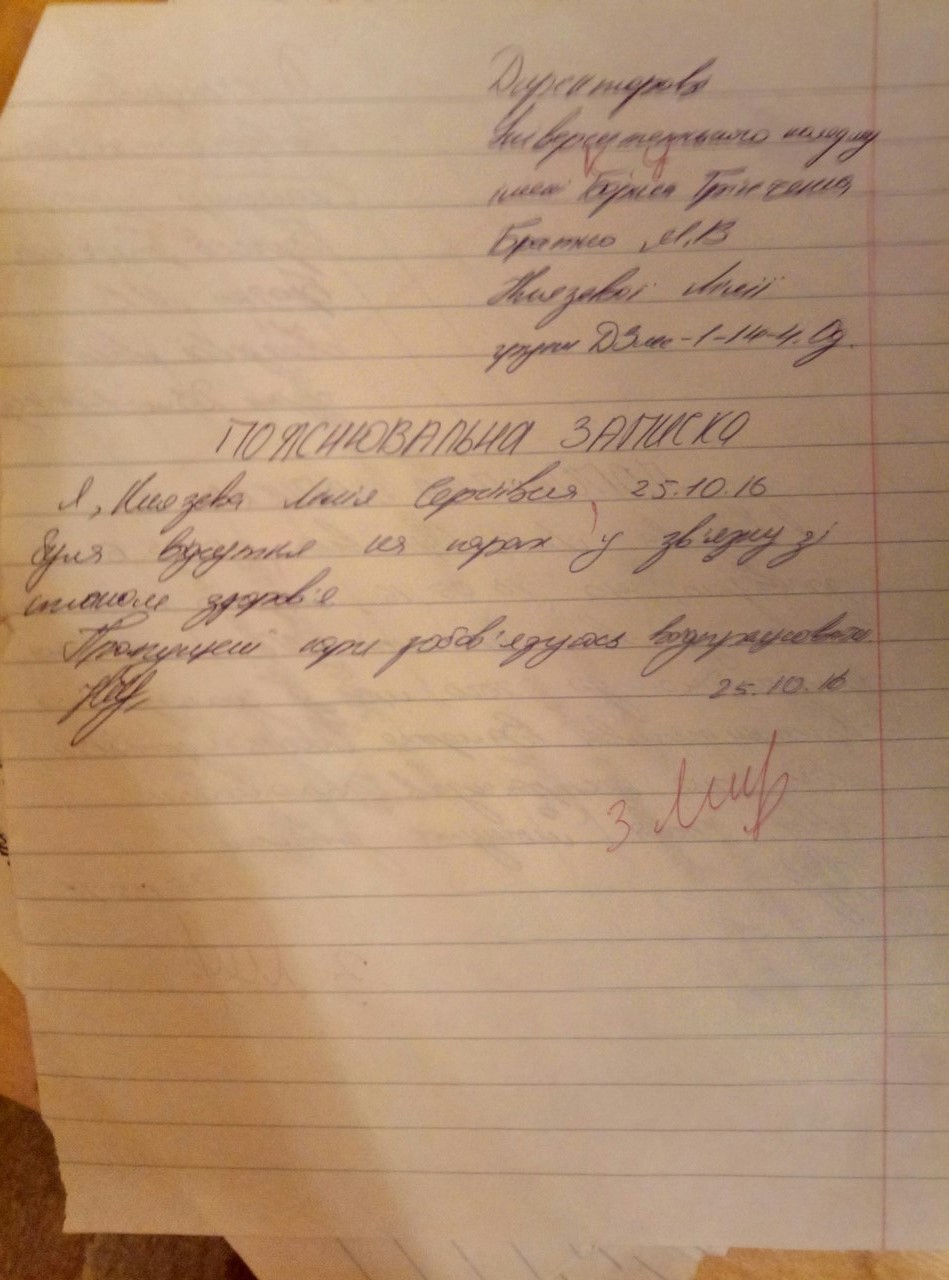 Директорові
Університетського коледжу
імені Бориса Грінченка
Братко М,В
Князевої Лілії
групи ДЗмс-1-14-4.Од.
ПОЯСНЮВАЛЬНА ЗАПИСКА
Я, Князева Лілія Сергіївня, 25.10.16
була відсутня на парах у зв'язку зі
станом здоров'я
Пропущені пари зобов'язуюсь відпрацювати
25.10.16
3